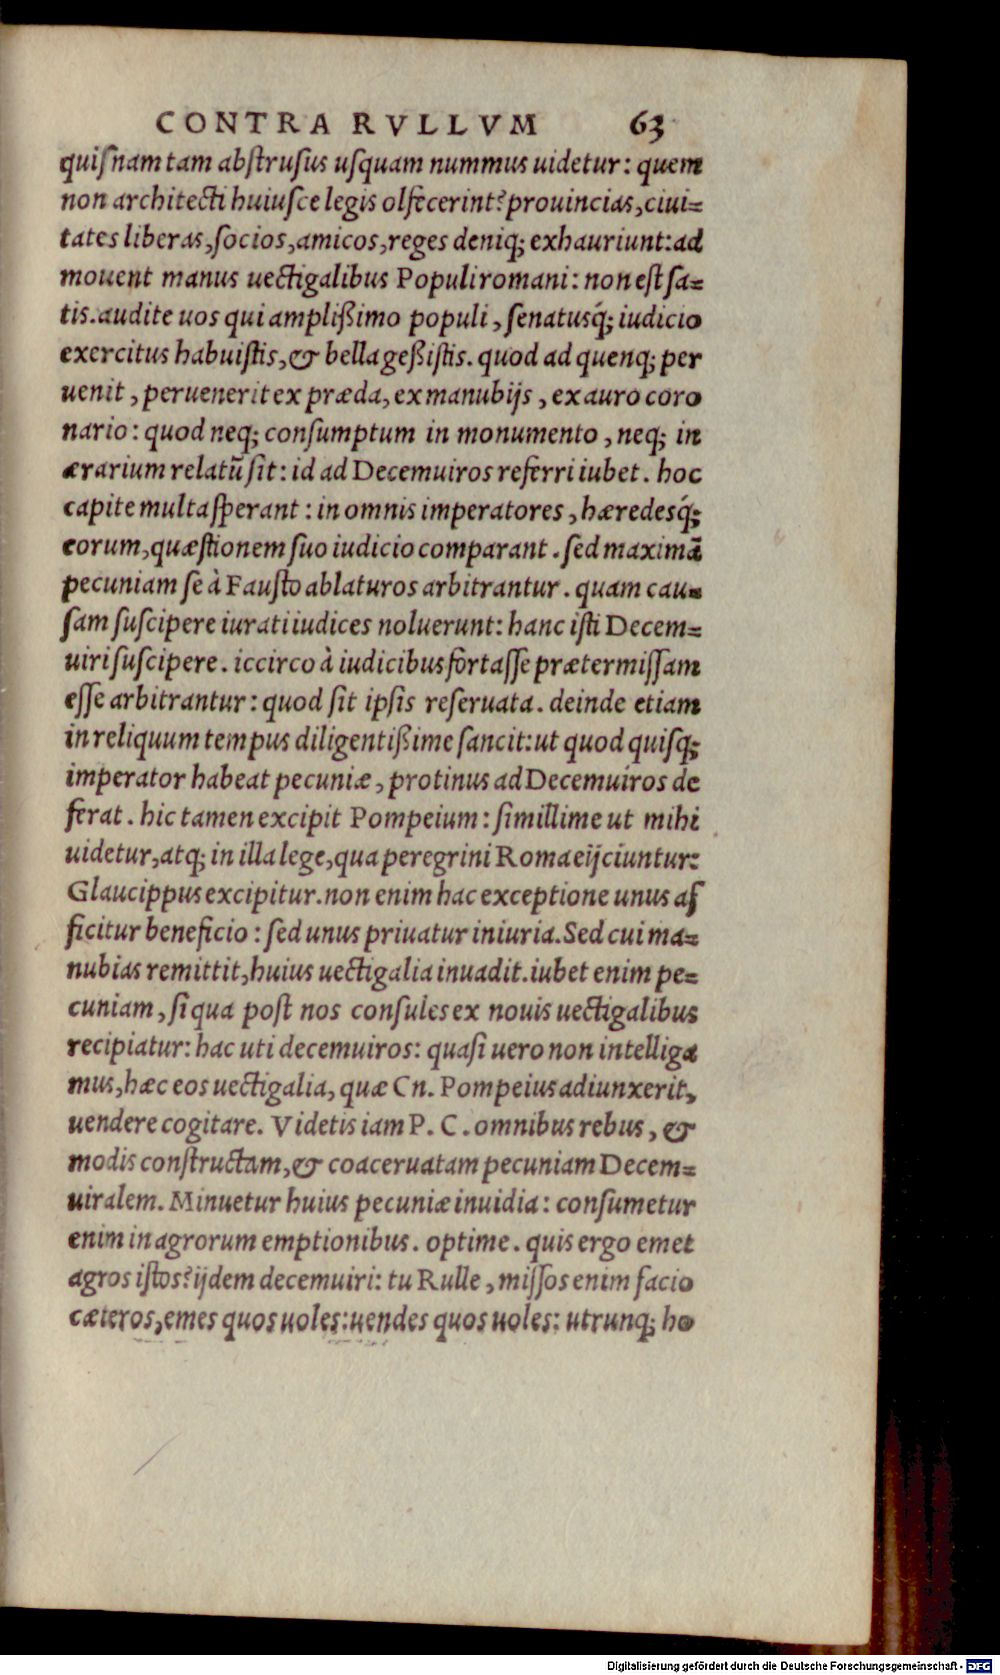 CONTRA RVLLVM 63
quiſnam tam abſtruſus uſquam nummus uidetur: quem
non architecti huiuſce legis olfecerint? prouincias, ciui=
tates liberas, ſocios, amicos, reges deniq; exhauriunt: ad
mouent manus uectigalibus Populi romani: non eſt ſa=
tis. audite uos qui ampliſſimo populi, ſenatusq́; iudicio
exercitus habuiſtis, & bella geſſiſtis. quod ad quenq; per
uenit, peruenerit ex præda, ex manubijs, ex auro coro
nario: quod neq; conſumptum in monumento, neq; in
ærarium relatũ ſit: id ad Decemuiros referri iubet. hoc
capite multa ſperant: in omnis imperatores, hæredesq́;
eorum, quæſtionem ſuo iudicio comparant. ſed maximã
pecuniam ſe à Fauſto ablaturos arbitrantur. quam cau=
ſam ſuſcipere iurati iudices noluerunt: hanc iſti Decem=
uiri ſuſcipere. iccirco à iudicibus fortaſſe prætermiſſam
eſſe arbitrantur: quod ſit ipſis reſeruata. deinde etiam
in reliquum tempus diligentiſſime ſancit: ut quod quiſq;
imperator habeat pecuniæ, protinus ad Decemuiros de
ferat. hic tamen excipit Pompeium: ſimillime ut mihi
uidetur, atq; in illa lege, qua peregrini Roma eijciuntur:
Glaucippus excipitur. non enim hac exceptione unus af
ficitur beneficio: ſed unus priuatur iniuria. Sed cui ma=
nubias remittit, huius uectigalia inuadit. iubet enim pe=
cuniam, ſi qua poſt nos conſules ex nouis uectigalibus
recipiatur: hac uti decemuiros: quaſi uero non intelliga
mus, hæc eos uectigalia, quæ Cn. Pompeius adiunxerit,
uendere cogitare. Videtis iam P. C. omnibus rebus, &
modis conſtructam, & coaceruatam pecuniam Decem=
uiralem. Minuetur huius pecuniæ inuidia: conſumetur
enim in agrorum emptionibus. optime. quis ergo emet
agros iſtos? ijdem decemuiri: tu Rulle, miſſos enim facio
cæteros, emes quos uoles: uendes quos uoles: utrunq; ho
Digitalisierung gefördert durch die Deutsche Forschungsgemeinschaft - DFG